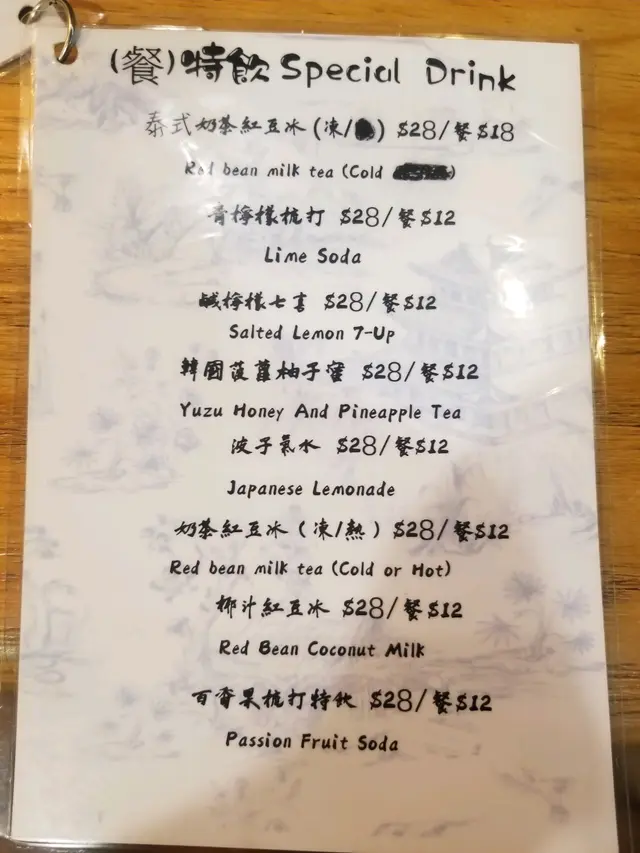 (餐)特飲 Special Drink
泰式奶茶紅豆冰 (凍/ ) $28/餐$18
Red bean milk tea (Cold )
青檸檬梳打 $28/餐$12
Lime Soda
鹹檸檬七喜 $28/餐$12
Salted Lemon 7-Up
韓國菠蘿柚子蜜 $28/餐$12
Yuzu Honey And Pineapple Tea
波子氣水 $28/餐$12
Japanese Lemonade
奶茶紅豆冰 (凍/熱) $28/餐$12
Red bean milk tea (Cold or Hot)
椰汁紅豆冰 $28/餐$12
Red Bean Coconut Milk
百香果梳打特飲 $28/餐$12
Passion Fruit Soda